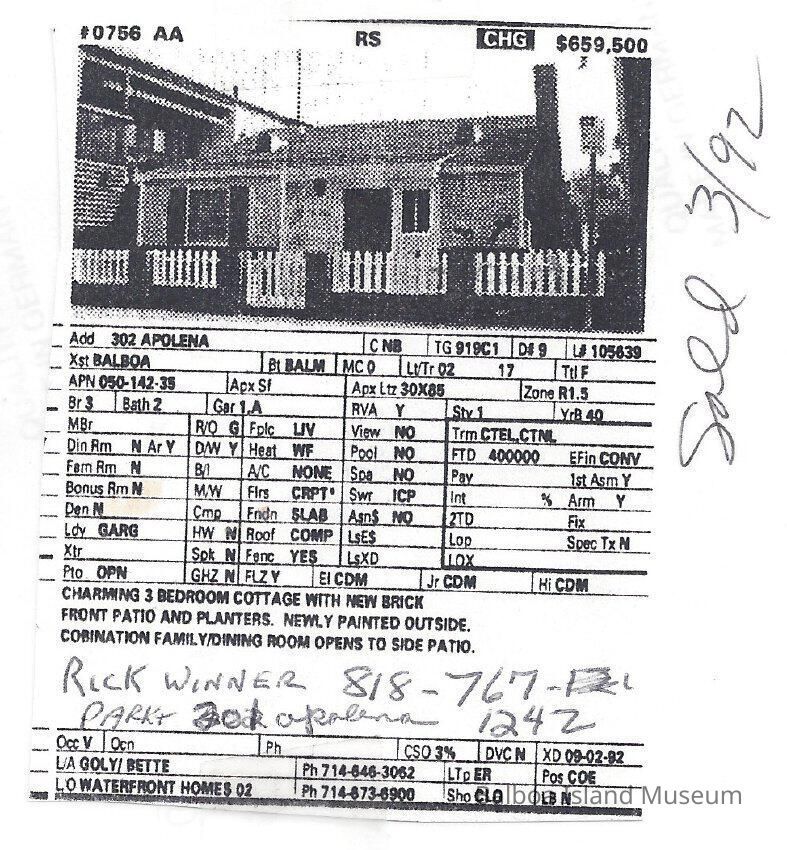 #0756 AA RS CHG $659,500
Sold 3/92
Add 302 APOLENA C NB TG 919C1 D# 9 L# 105639
Xst BALBOA Bt BALM MC 0 Lt/Tr 02 17 Ttl F
APN 050-142-35 Apx Sf Apx Ltz 30X85 Zone R1.5
Br 3 Bath 2 Gar 1,A RVA Y Sty 1 YrB 40
MBr R/O G Fplc LIV View NO Trm CTEL,CTNL
Din Rm N Ar Y D/W Y Heat WF Pool NO FTD 400000 EFin CONV
Fam Rm N B/I A/C NONE Spa NO Pay 1st Asm Y
Bonus Rm N M/W Flrs CRPT* Swr ICP Int % Arm Y
Den N Cmp Fndn SLAB Asn$ NO 2TD Fix
Ldy GARG HW N Roof COMP LsE$ Lop Spec Tx N
Xtr Spk N Fenc YES LsXD LOX
Pto OPN GHZ N FLZ Y El CDM Jr CDM Hi CDM
CHARMING 3 BEDROOM COTTAGE WITH NEW BRICK
FRONT PATIO AND PLANTERS. NEWLY PAINTED OUTSIDE.
COBINATION FAMILY/DINING ROOM OPENS TO SIDE PATIO.
RICK WINNER 818-767-
apolena 1242
Occ V Ocn Ph CSO 3% DVC N XD 09-02-92
L/A GOLY/ BETTE Ph 714-646-3062 LTp ER Pos COE
L/O WATERFRONT HOMES 02 Ph 714-673-6900 Sho CLG LB N
Balboa Island Museum